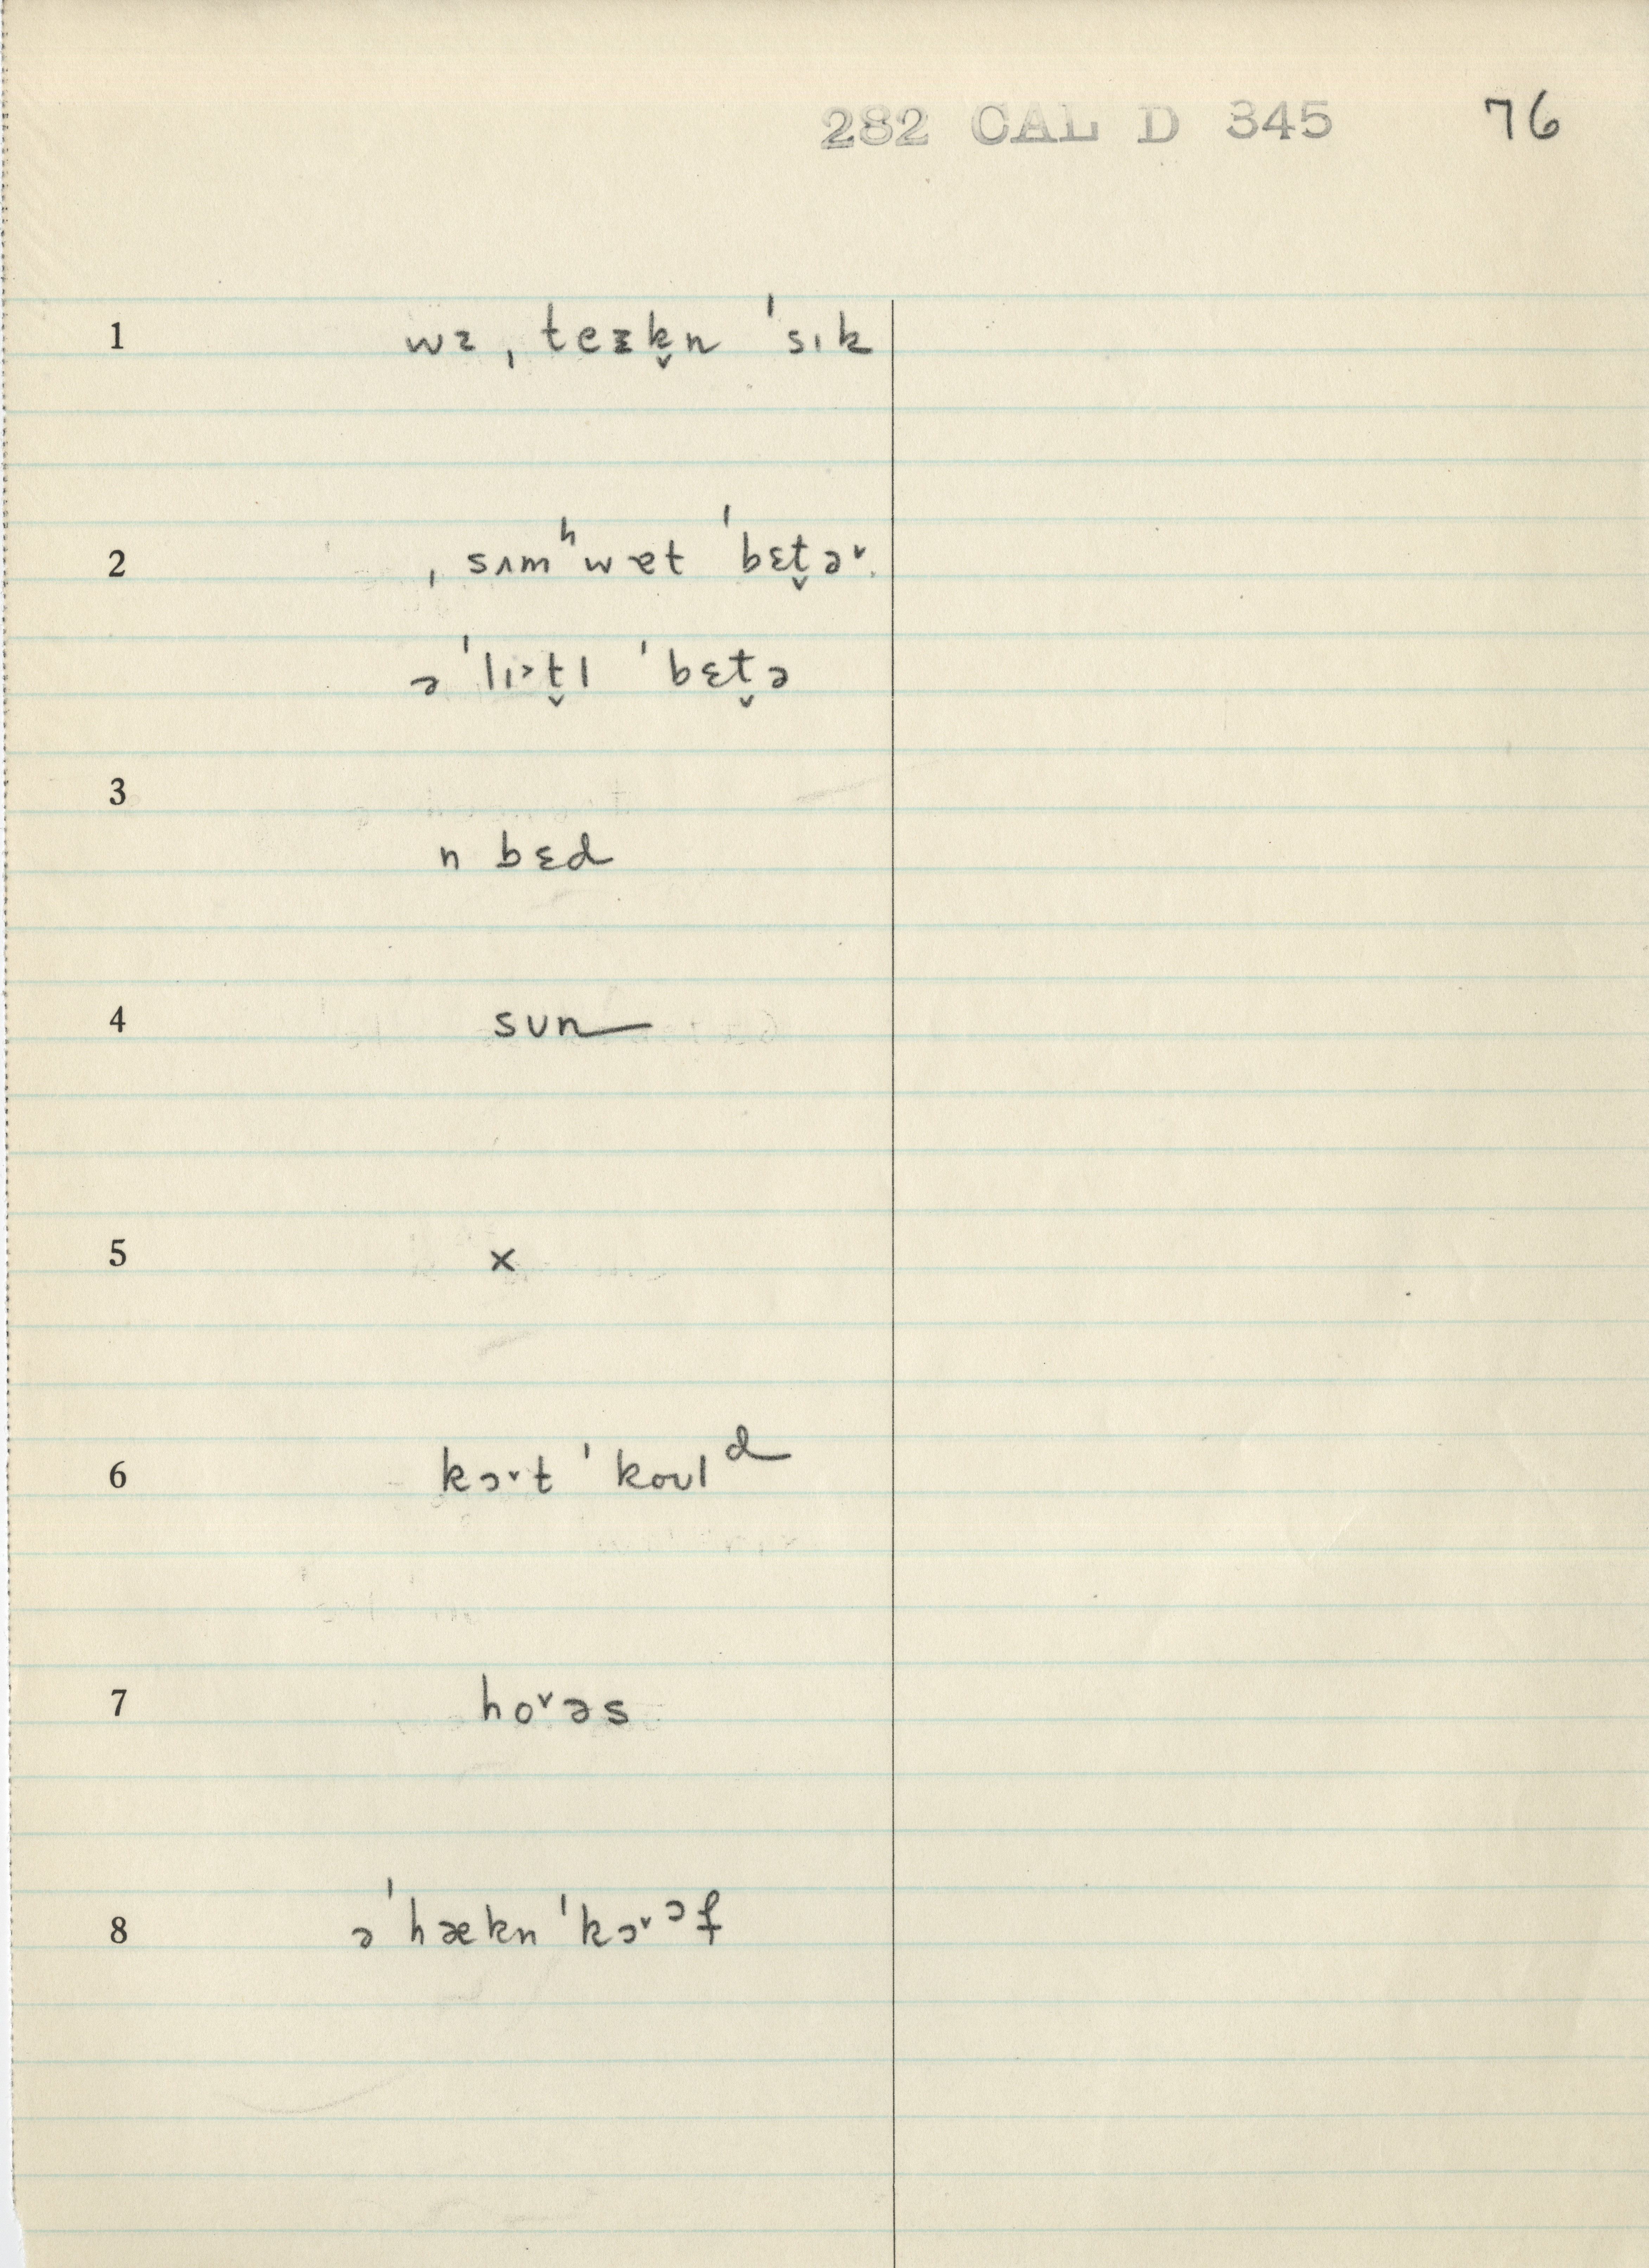 282 CAL D 345 76
1 wɜ ˌteɪk̬n ˈsɪk
2 ˌsʌmʰwɐt ˈbɛt̬ɚ
ə ˈlɪ˃t̬l ˈbɛt̬ə
3
n bɛd
4 sun
5 x
6 kɔ˅t ˈkoʊlᵈ
7 ho˅əs
8 ə ˈhækn ˈkɔ˅ᵊf